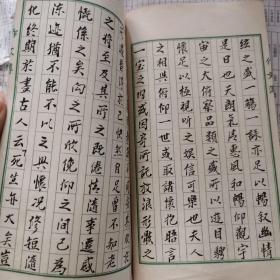 絃之盛一觴一詠亦足以暢敘幽情
是日也天朗氣清惠風和暢仰觀宇
宙之大俯察品類之盛所以遊目騁
懷足以極視聽之娛信可樂也夫人
之相與俯仰一世或取諸懷抱晤言
一室之內或因寄所託放浪形骸之
快然自足曾不知老
之將至及其所之既惓情隨事遷感
慨係之矣向之所欣俛仰之間已為
陳迹猶不能不以之興懷況修短隨
化終期於盡古人云死生亦大矣豈